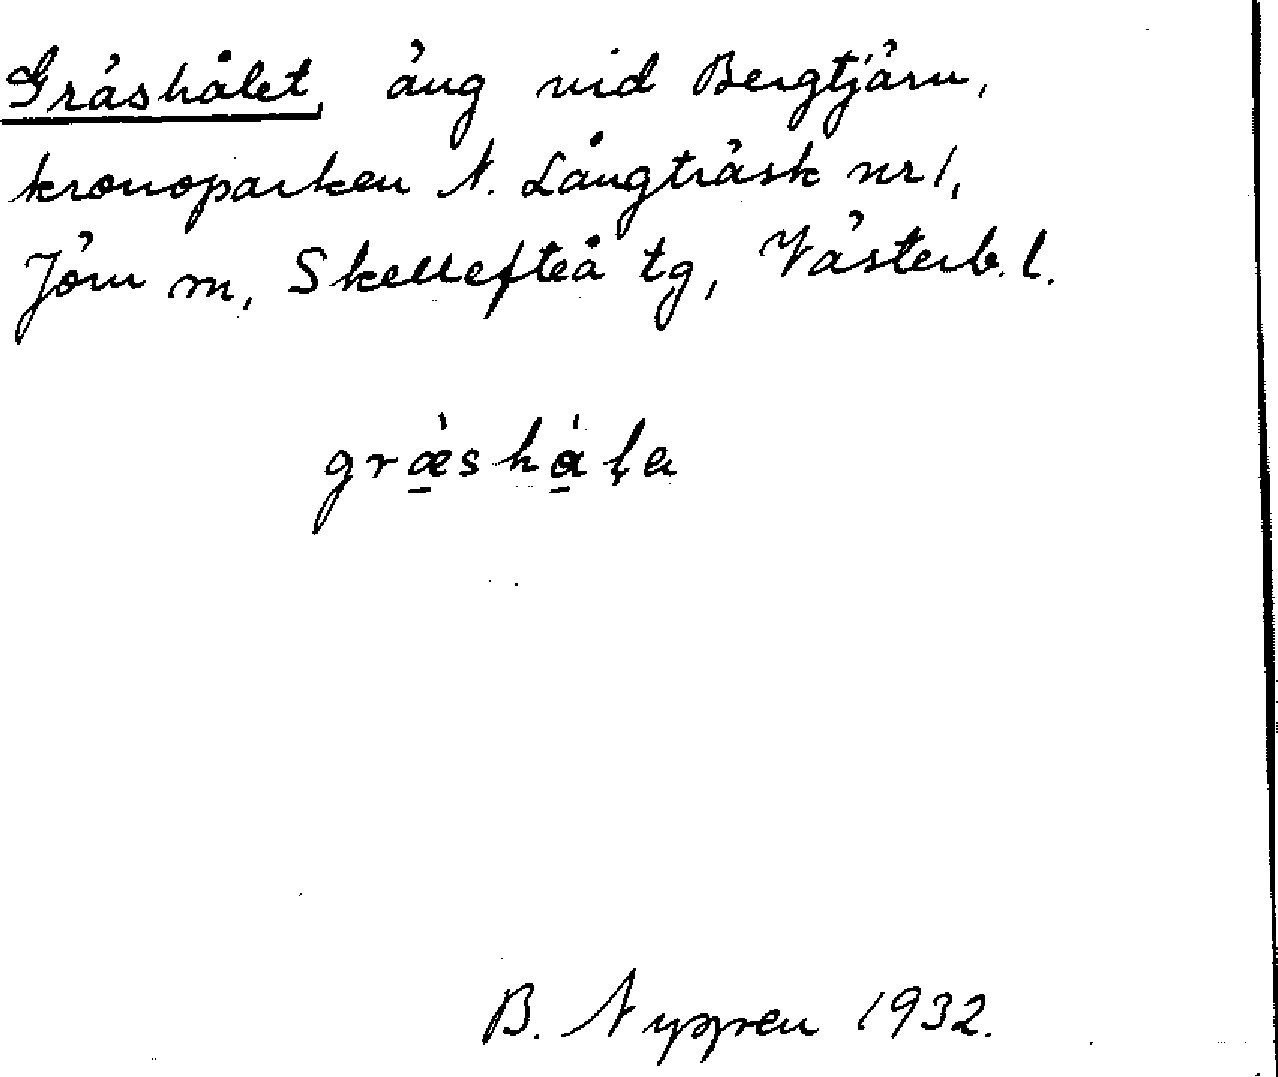 Gräshålet, äng vid Bergtjärn,
kronoparken N. Långträsk nr 1,
Jörn sn, Skellefteå tg, Västerb. l.
græshålα
B. Nygren 1932.